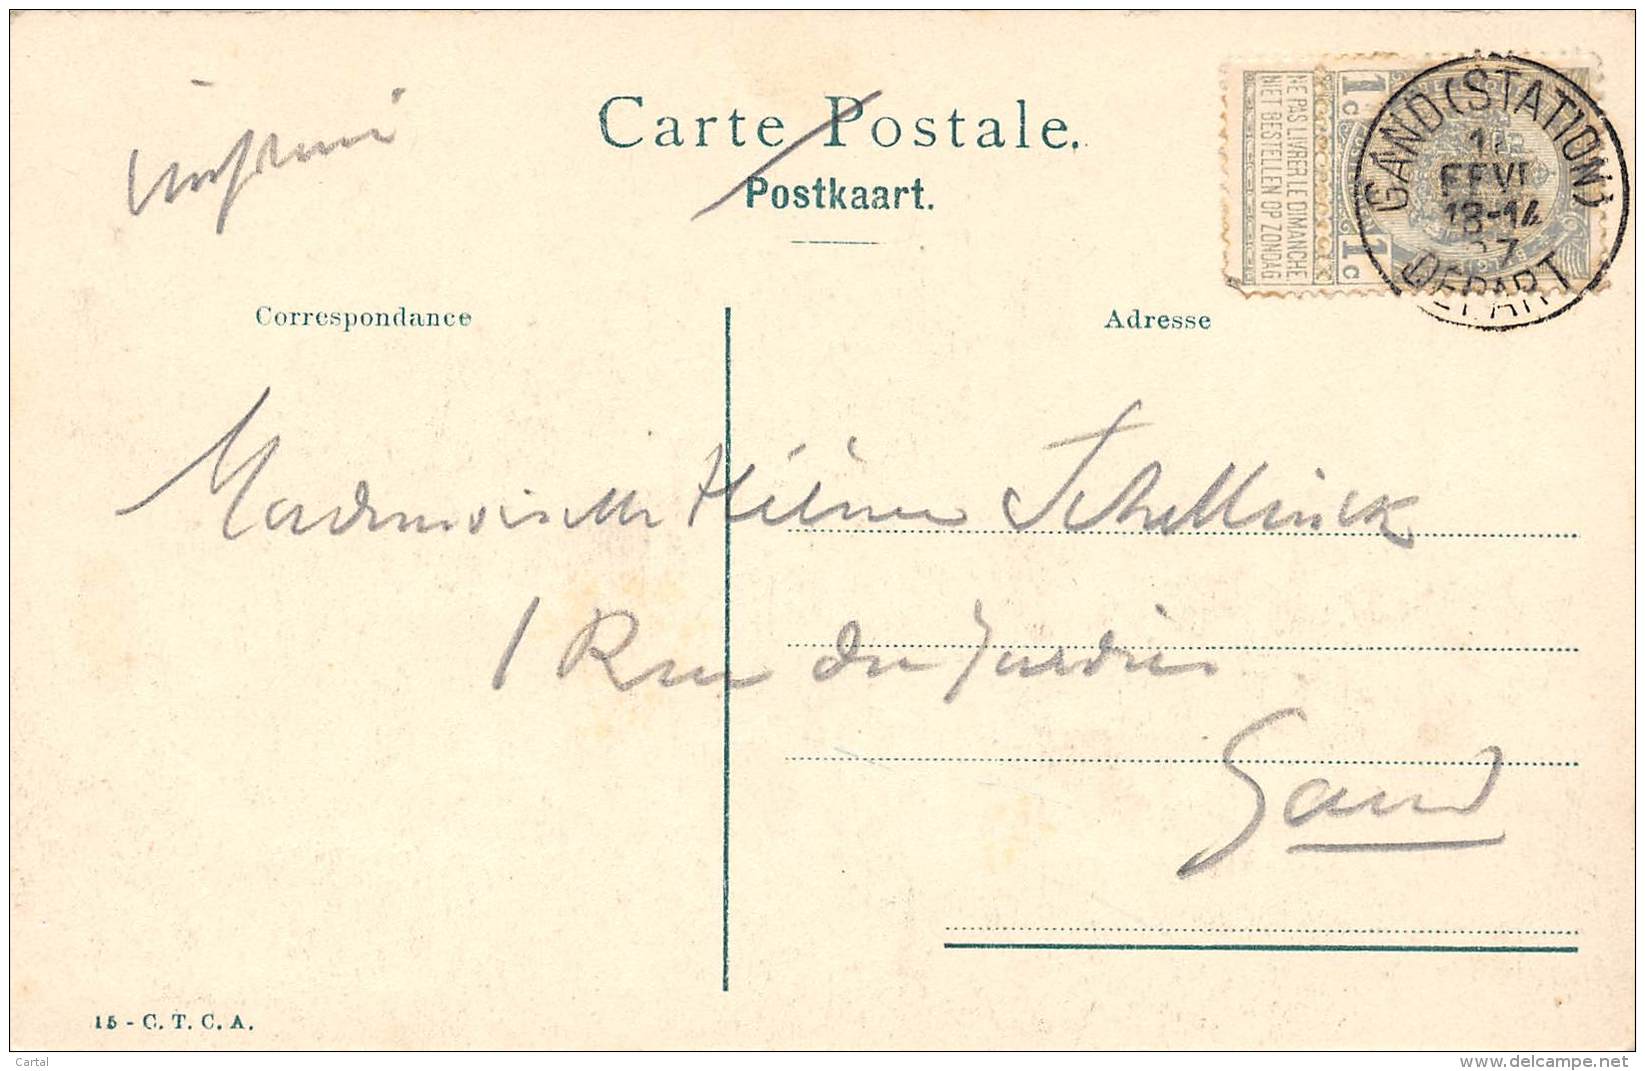 imprimé
Carte Postale.
Postkaart.
NE PAS LIVRER LE DIMANCHE
NIET BESTELLEN OP ZONDAG
1c 1c
GAND (STATION)
FEVR
13-14
DEPART
Correspondance
Adresse
Mademoiselle Hélène Schellinck
1 Rue du Jardin
Gand
15 - C. T. C. A.
Cartal
delcampe.net